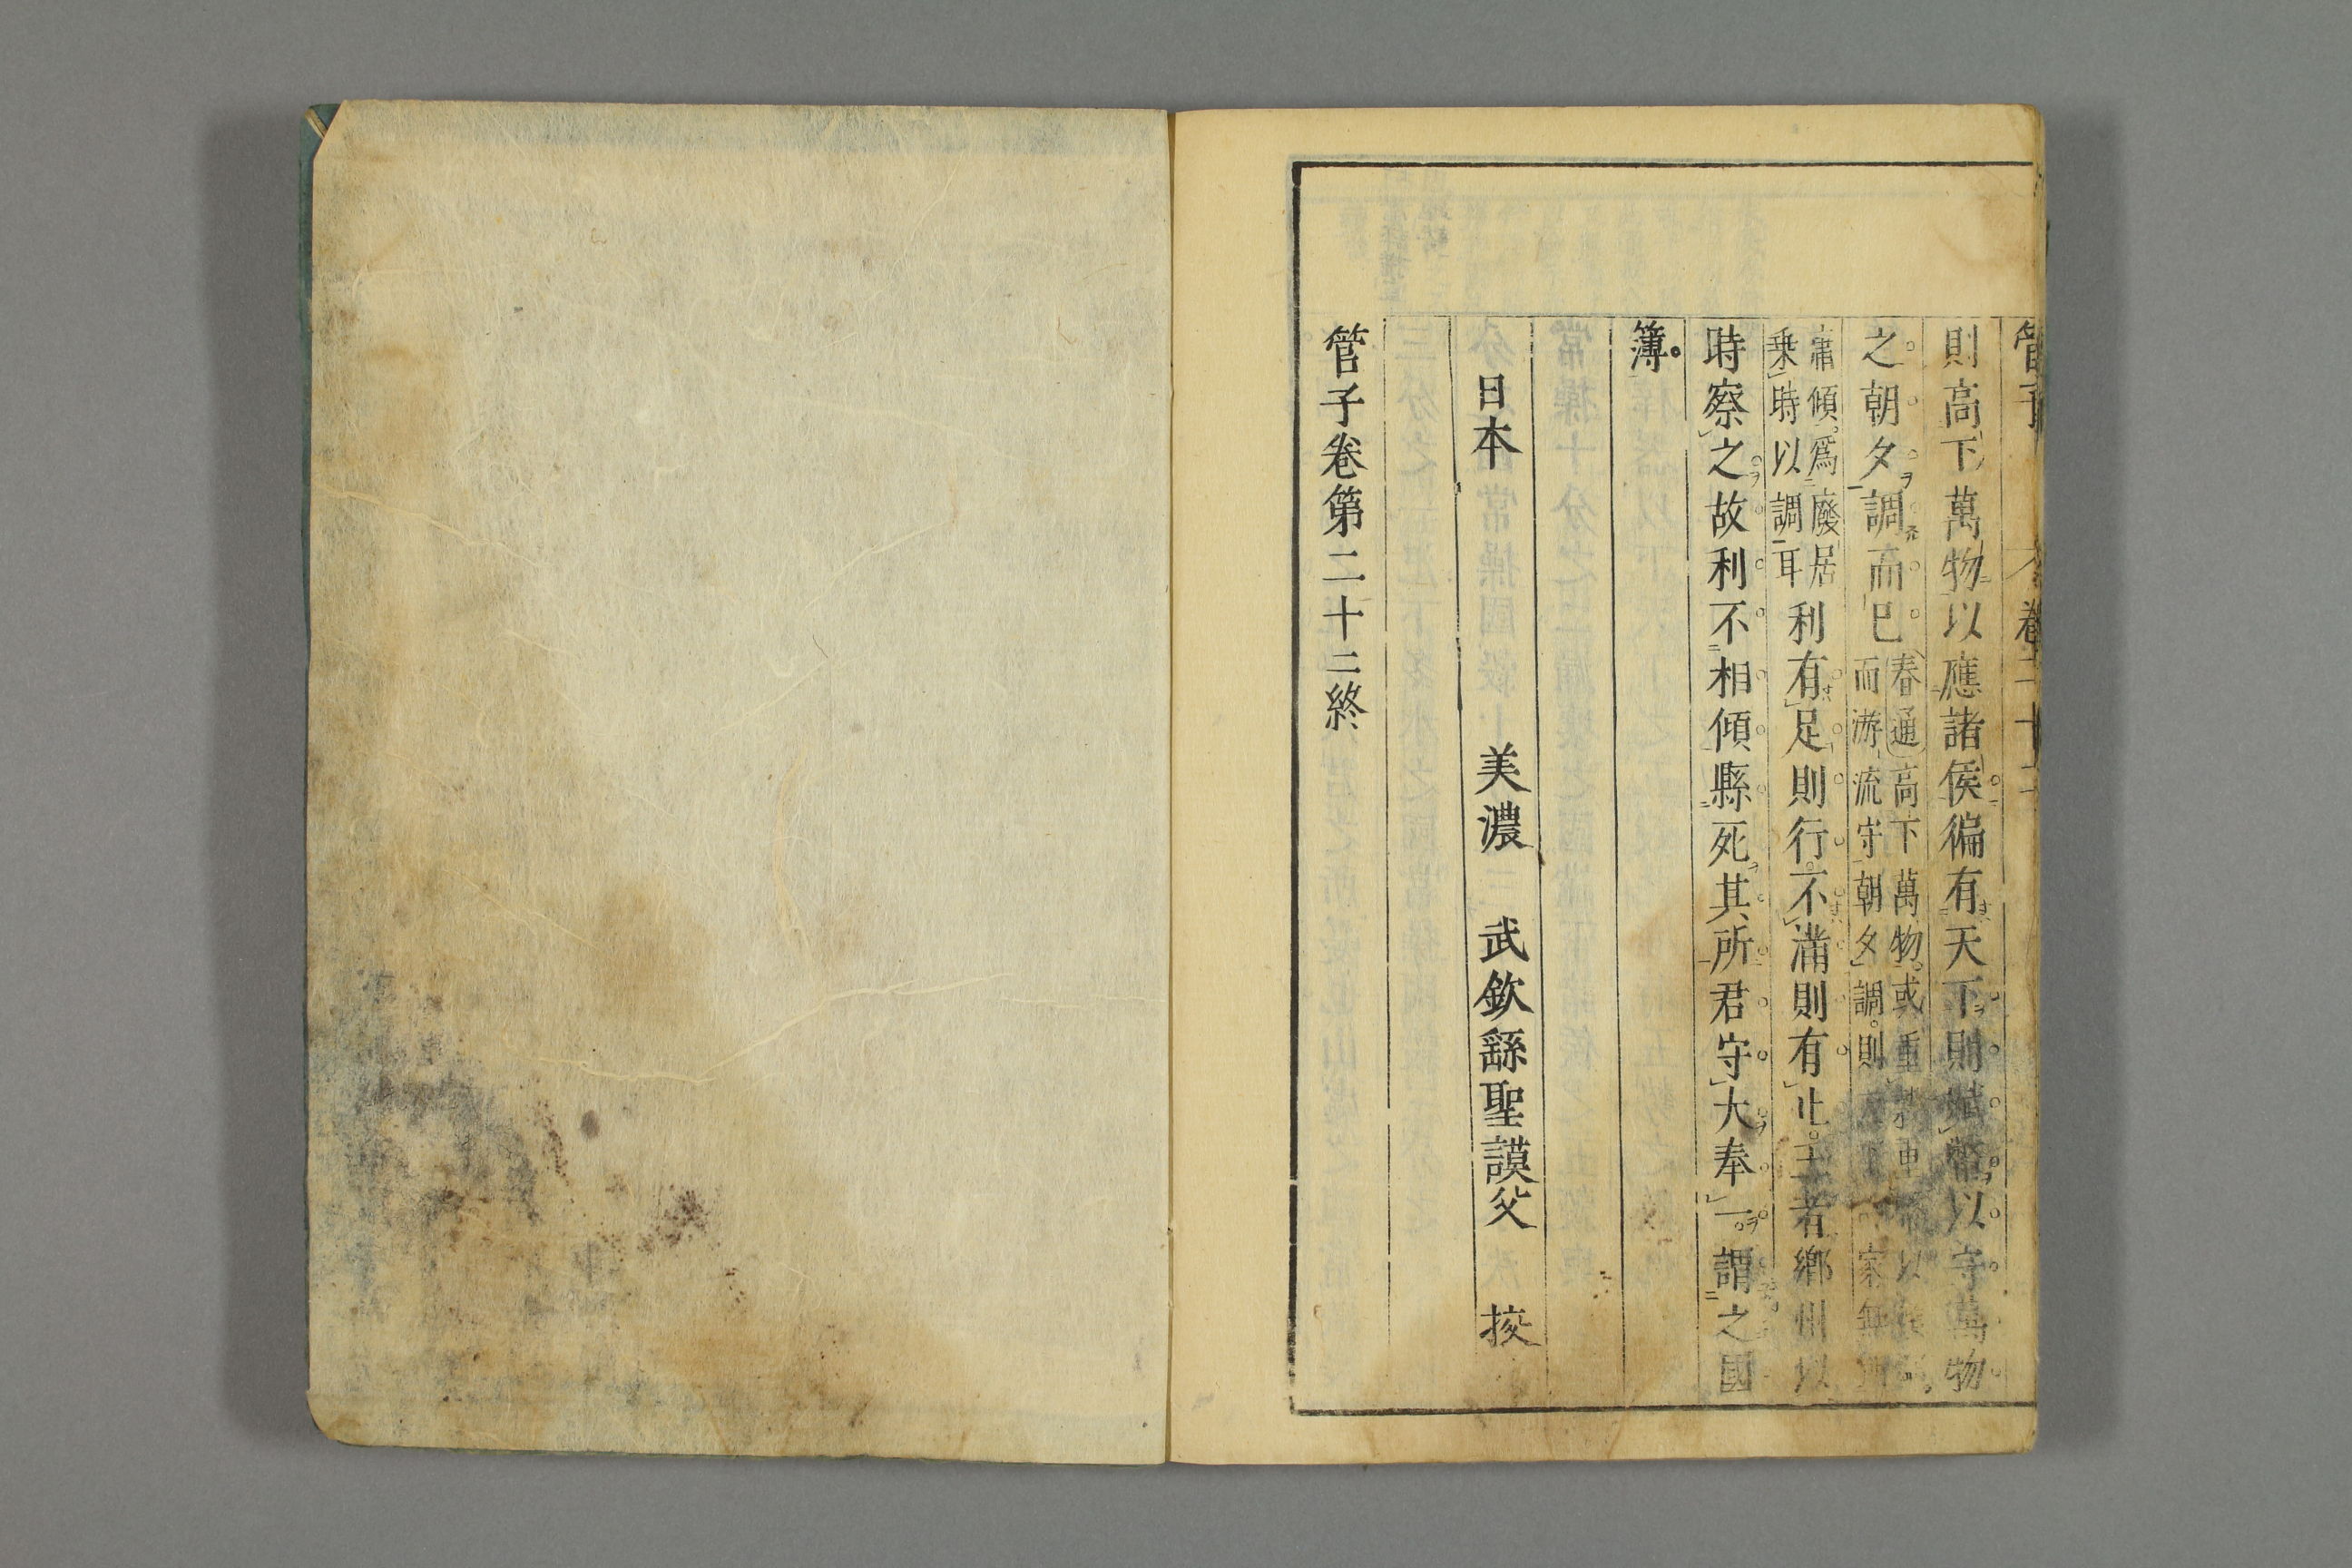 管子 卷二十二
則高下萬物以應諸侯徧有天下則賦幣以守萬物
之朝夕調而已
春通高下萬物或重
而游流守朝夕調則
肅傾爲廢居
乗時以調耳
利有足則行不滿則有止王者鄉州以
時察之故利不相傾縣死其所君守大奉一謂之國
簿
日本 美濃 武欽繇聖謨父 挍
管子卷第二十二終